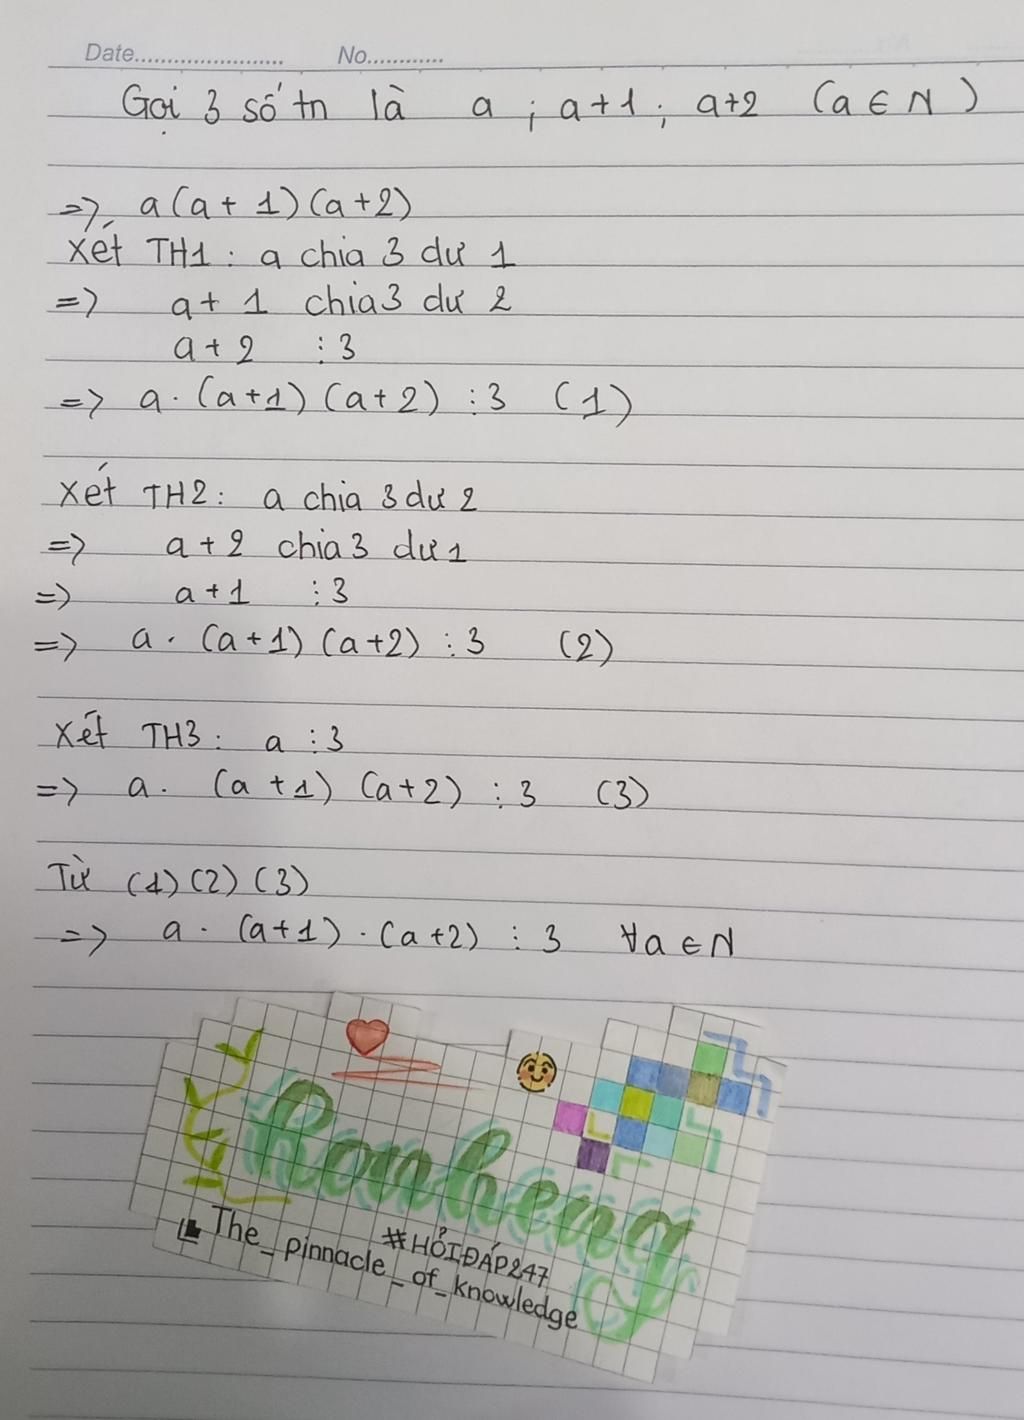 Date........................ No............
Gọi 3 số tn là a ; a+1 ; a+2 (a ∈ N)
=> a(a + 1)(a+2)
Xét TH1 : a chia 3 dư 1
=> a+ 1 chia 3 dư 2
a + 2 ⋮ 3
=> a . (a+1) (a+2) ⋮ 3 (1)
Xét TH2 : a chia 3 dư 2
=> a + 2 chia 3 dư 1
=> a +1 ⋮ 3
=> a . (a+1) (a+2) ⋮ 3 (2)
Xét TH3 : a ⋮ 3
=> a . (a +1) (a+2) ⋮ 3 (3)
Từ (1) (2) (3)
=> a . (a+1) . (a+2) ⋮ 3 ∀a ∈ N
Ronheng
#HỎIĐÁP247
The_pinnacle_of_knowledge